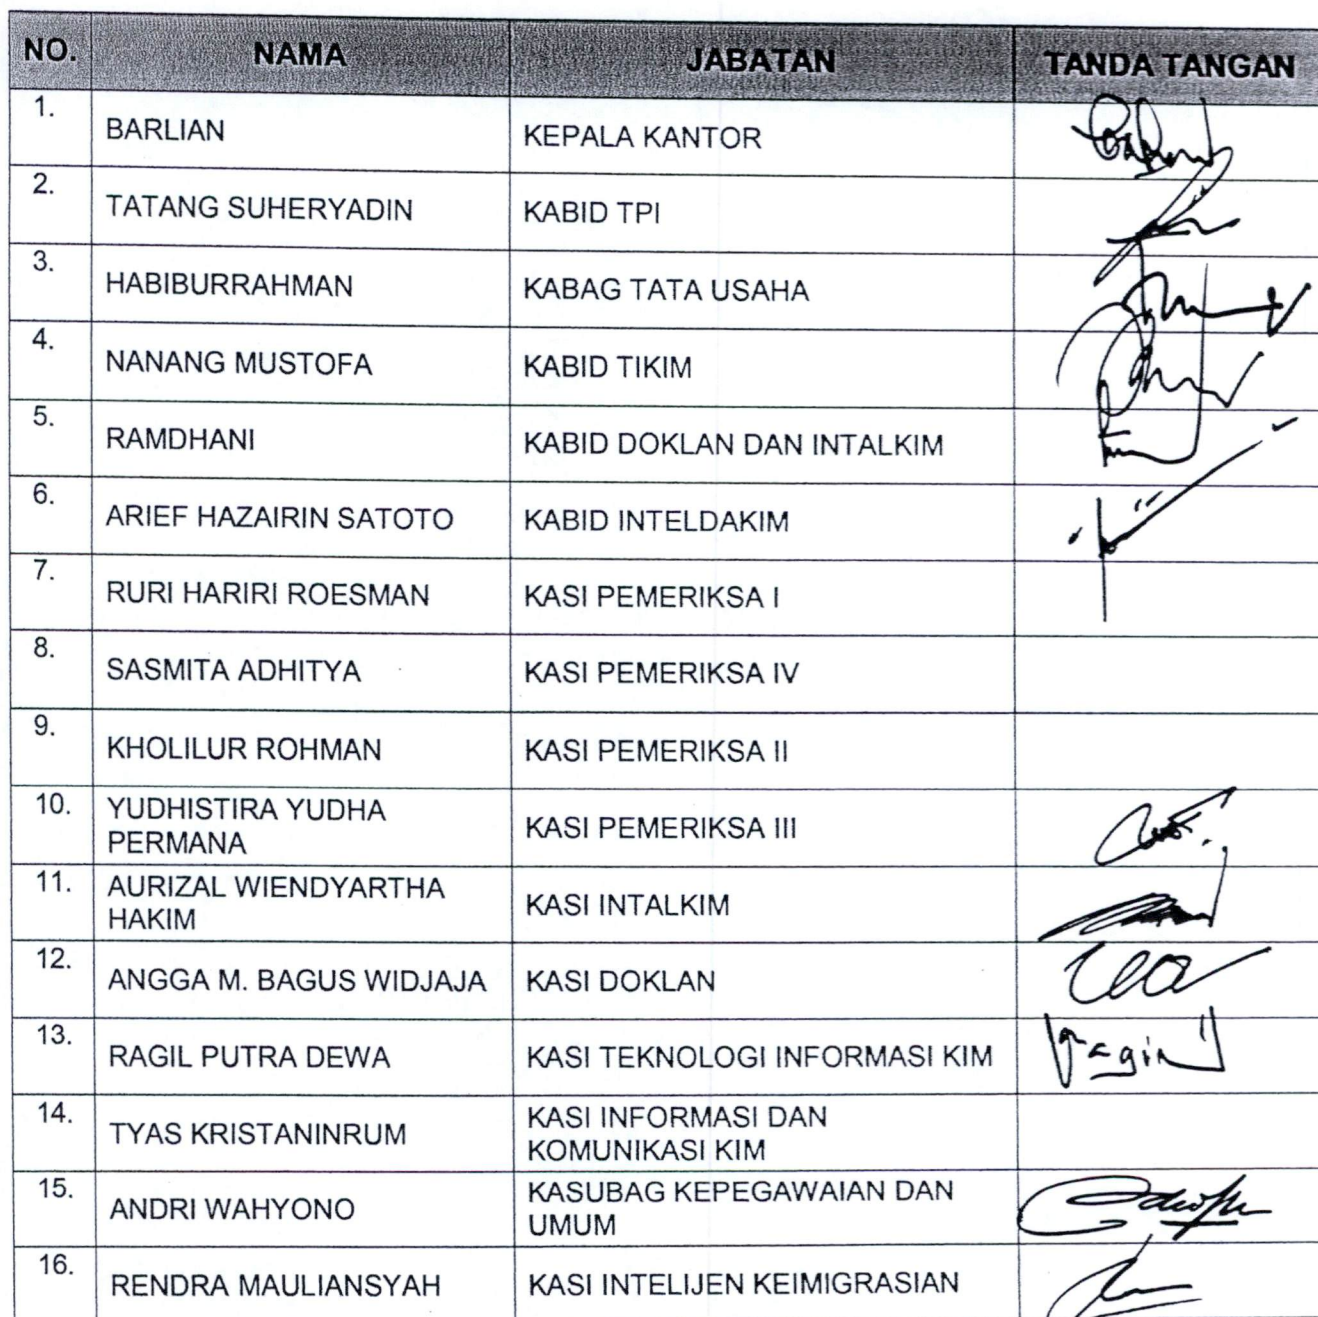 NO. NAMA JABATAN TANDA TANGAN
1. BARLIAN KEPALA KANTOR
2. TATANG SUHERYADIN KABID TPI
3. HABIBURRAHMAN KABAG TATA USAHA
4. NANANG MUSTOFA KABID TIKIM
5. RAMDHANI KABID DOKLAN DAN INTALKIM
6. ARIEF HAZAIRIN SATOTO KABID INTELDAKIM
7. RURI HARIRI ROESMAN KASI PEMERIKSA I
8. SASMITA ADHITYA KASI PEMERIKSA IV
9. KHOLILUR ROHMAN KASI PEMERIKSA II
10. YUDHISTIRA YUDHA
PERMANA
KASI PEMERIKSA III
11. AURIZAL WIENDYARTHA
HAKIM
KASI INTALKIM
12. ANGGA M. BAGUS WIDJAJA KASI DOKLAN
13. RAGIL PUTRA DEWA KASI TEKNOLOGI INFORMASI KIM
14. TYAS KRISTANINRUM
KASI INFORMASI DAN
KOMUNIKASI KIM
15. ANDRI WAHYONO
KASUBAG KEPEGAWAIAN DAN
UMUM
16. RENDRA MAULIANSYAH KASI INTELIJEN KEIMIGRASIAN